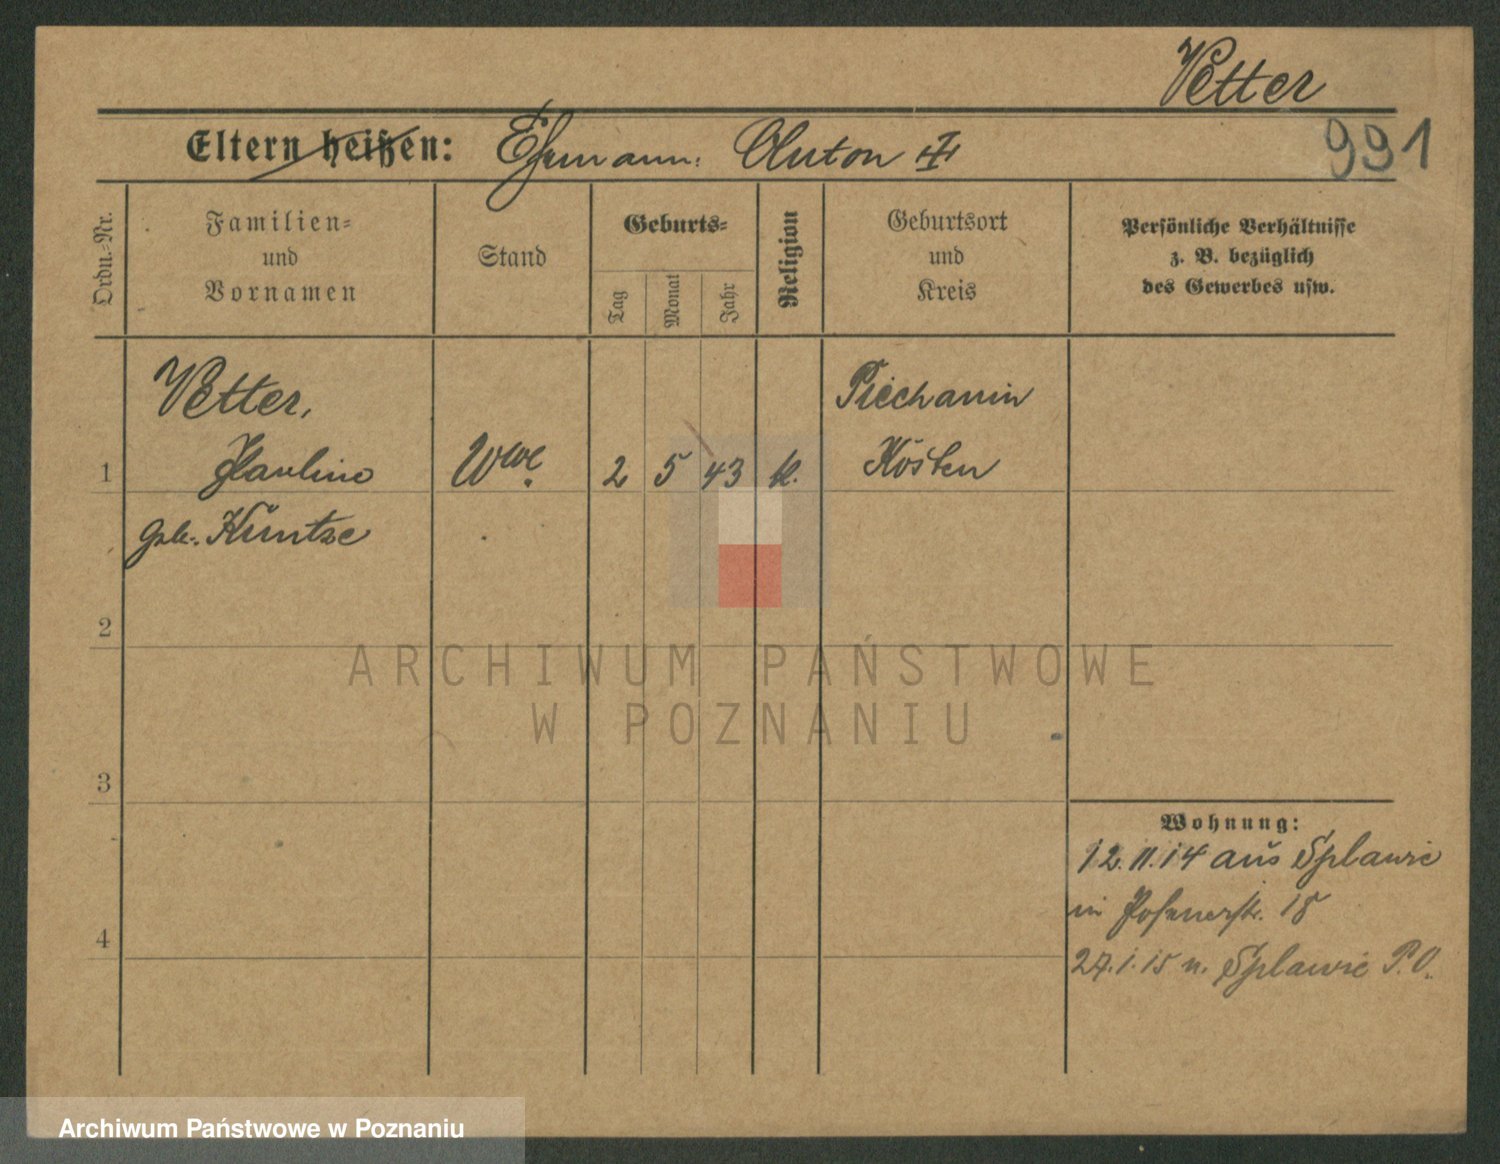 Vetter
Eltern heißen: Ehemann: Anton
991
Ordn.-Nr.
Familien-
und
Vornamen
Stand
Geburts-
Tag
Monat
Jahr
Religion
Geburtsort
und
Kreis
Persönliche Verhältnisse
z. B. bezüglich
des Gewerbes usw.
Vetter,
Pauline
geb. Kuntze
Wwe.
2
5
43
k.
Piechanin
Kosten
1
2
3
4
Wohnung:
12.11.14 aus Splawie
in Posenerstr. 18
27.1.15 n. Splawie P.O.
ARCHIWUM PAŃSTWOWE
W POZNANIU
Archiwum Państwowe w Poznaniu